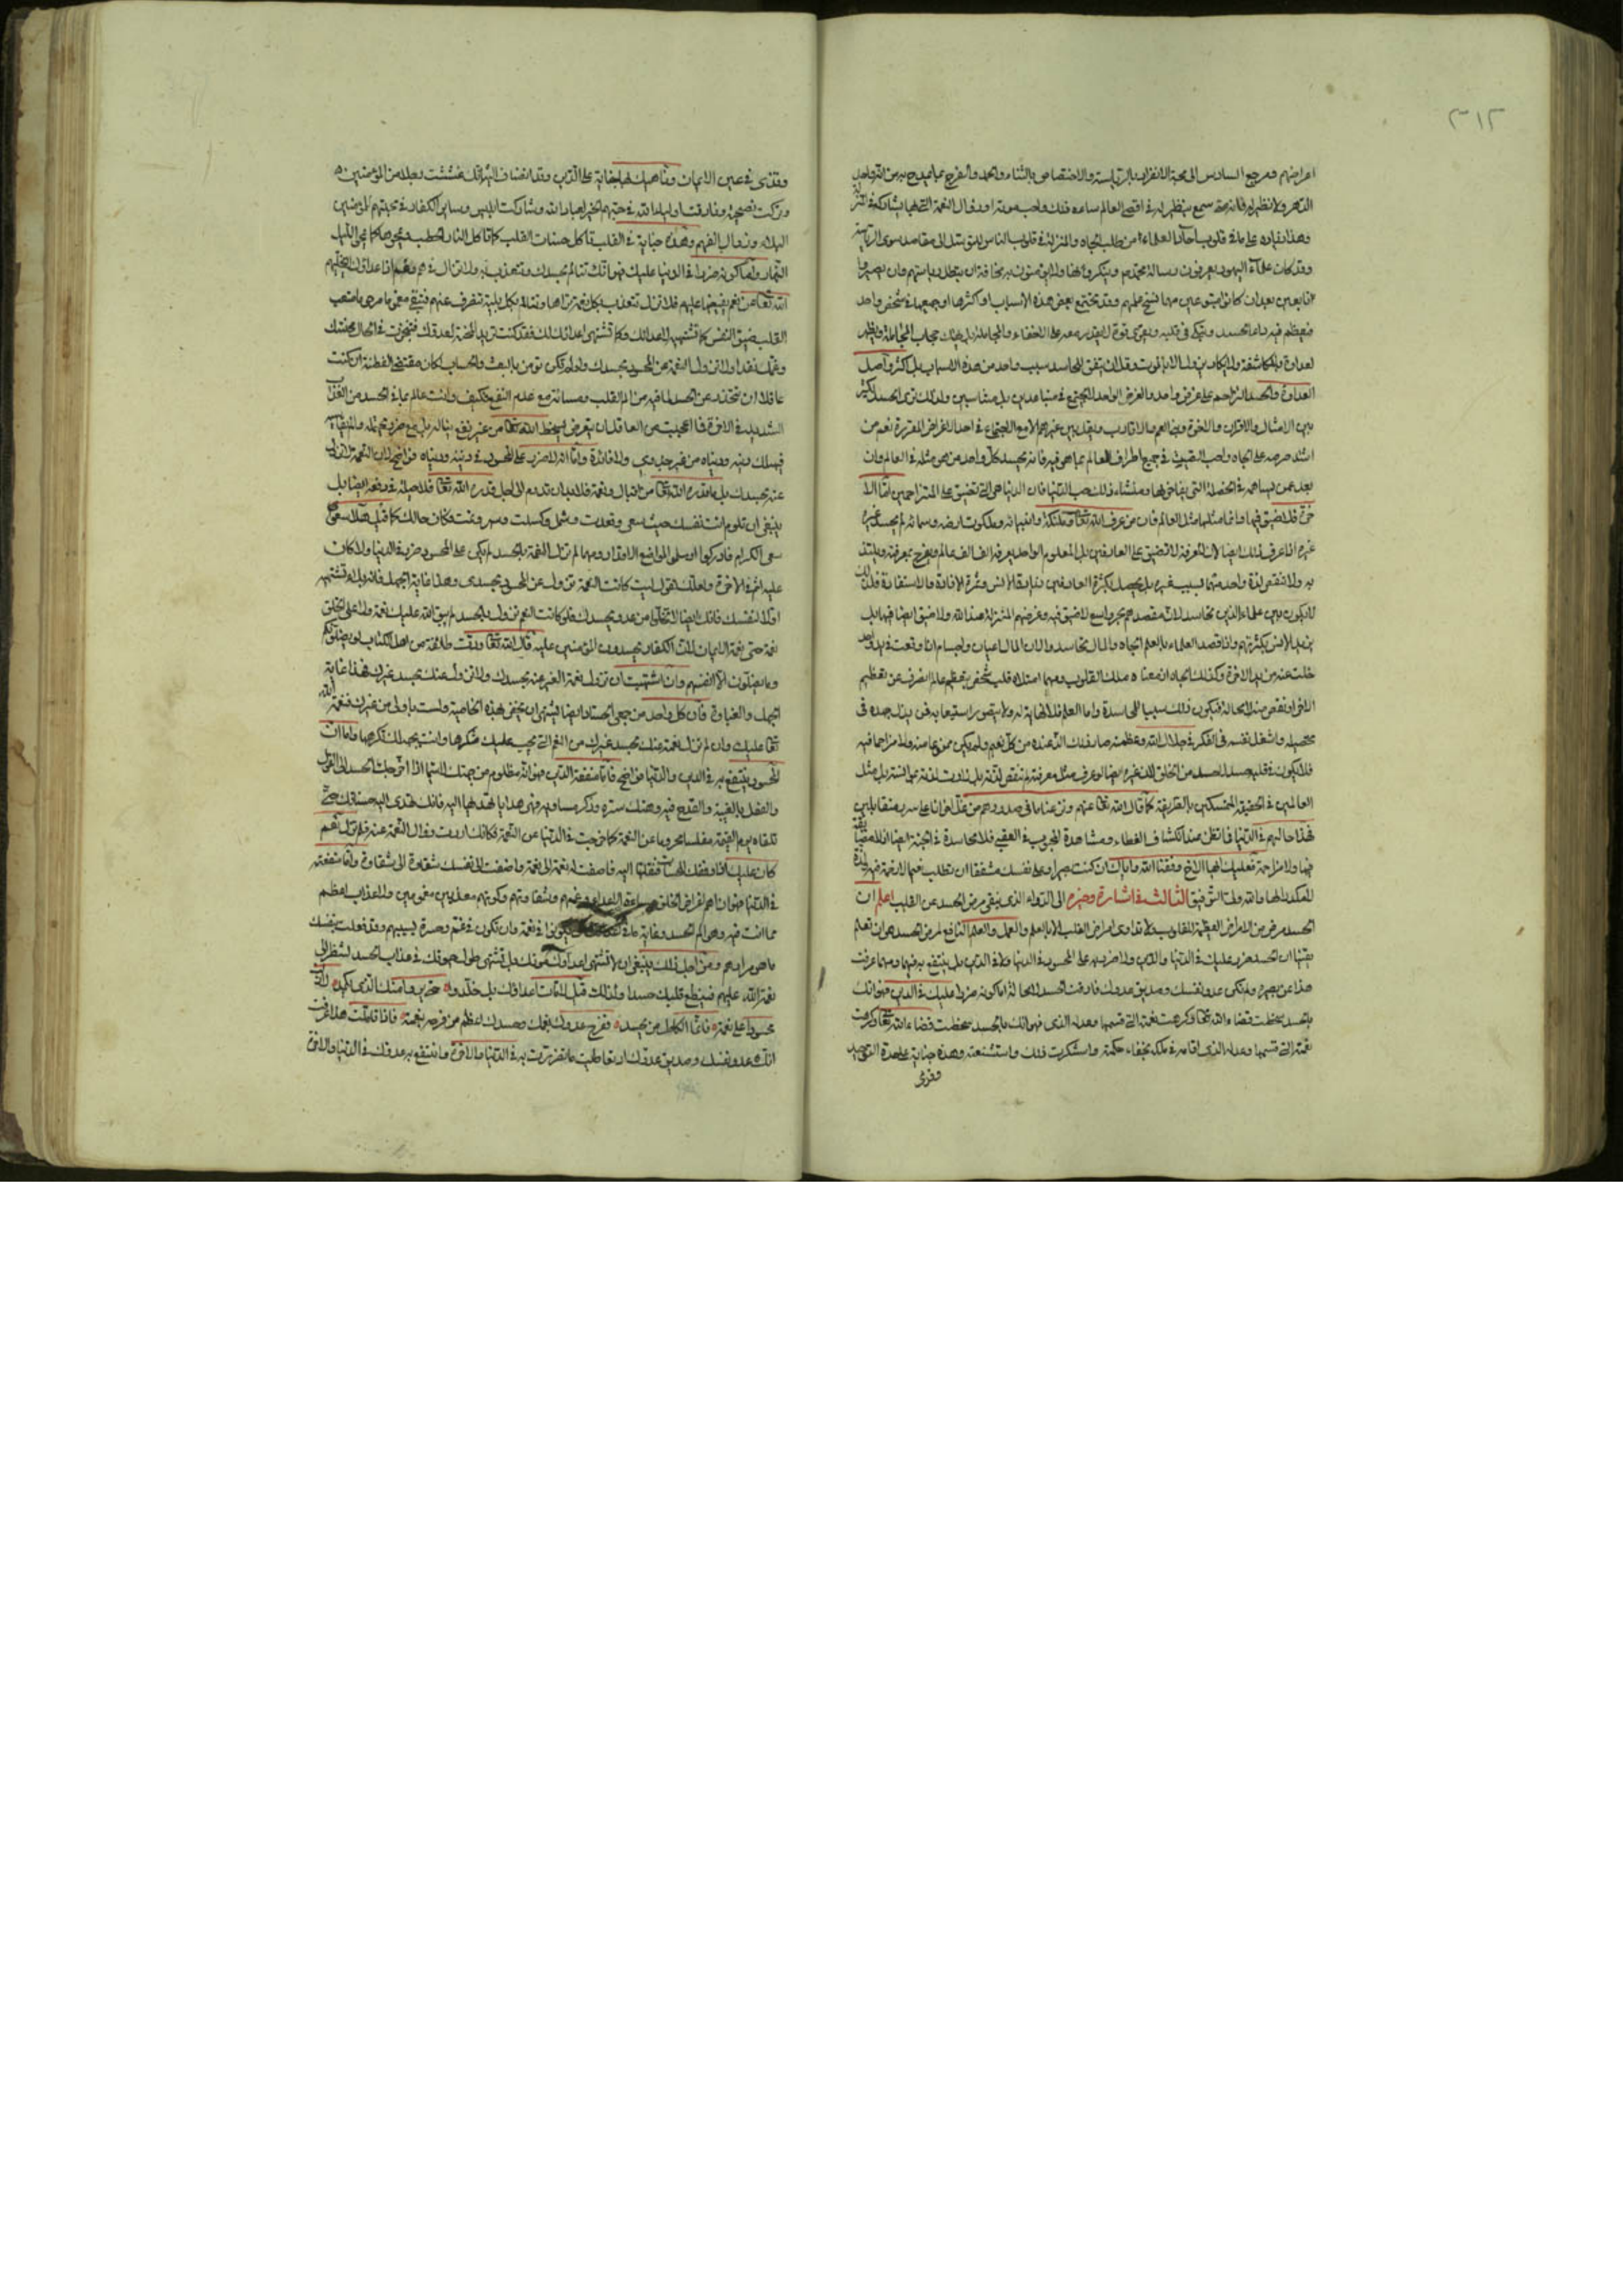 ٣١٢
اعراضهم ومرجع السادس الى محبة الانفراد بالرياسة والاختصاص بالثناء والحمد والفرح بما يمدح به من انه واحد
الدهر ولا نظير له فانه متى سمع بنظير له في اقصى العالم ساءه ذلك واحب موته او زوال النعمة التي بها يشاركه في المنزلة
وهذا زيادة على ما في قلوب آحاد العلماء من طلب الجاه والمنزلة في قلوب الناس للتوسل الى مقاصد سوى الرياسة
وقد كان علماء اليهود يعرفون رسالة محمد وينكرونها ولا يؤمنون به مخافة ان يبطل رياستهم وان يصيروا
تابعين بعد ان كانوا متبوعين مهما نسخ علمهم وقد يجتمع بعض هذه الاسباب او اكثرها او جميعها في شخص واحد
فيعظم فيه داء الحسد ويتمكن في قلبه ويقوى قوة لا يقدر معه على الاخفاء والمجاملة بل يهتك حجاب المجاملة ويظهر
العداوة والمكاشفة ولا يكاد يزول الا بالموت وقل ان يتفق للحاسد سبب واحد من هذه الاسباب بل اكثر واصل
العداوة والحسد التزاحم على غرض واحد والغرض الواحد لا يجتمع فيه متباعدين بل متناسبين ولذلك ترى الحسد يكثر
بين الامثال والاقران والاخوة وبني العم والاقارب ويقل بين غيرهم الا مع الاجتماع في احد الاغراض المقررة نعم من
اشتد حرصه على الجاه واحب الصيت في جميع اطراف العالم بما هو فيه فانه يحسد كل واحد من هو مثله في العالم وان
بعد عمن يساهمه في الخصلة التي يفاخر بها ومنشاء ذلك حب الدنيا فان الدنيا هي التي تضيق على المتزاحمين اما الا
خرة فلا ضيق فيها وانما مثلها مثل العلم فان من عرف الله تعالى وملائكته وانبيائه وملكوت ارضه وسمائه لم يحسد غيره
غيره اذا عرف ذلك ايضا لان المعرفة لا تضيق على العارفين بل المعلوم الواحد يعرفه الف الف عالم ويفرح بمعرفته ويلتذ
به ولا تنقص لذة واحد منهما بسبب غيره بل يحصل بكثرة العارفين زيادة الانس وثمرة الافادة والاستفادة فلذلك
لا يكون بين علماء الدين تحاسد لان مقصدهم بحر واسع لا ضيق فيه وغرضهم المنزلة عند الله ولا ضيق ايضا فيها بل
يزيد الانس بكثرتهم واذا قصد العلماء بالعلم الجاه والمال تحاسدوا لان المال اعيان واجسام اذا وقعت في يد واحد
خلت عنه يد الاخرة وكذلك الجاه اذ معناه ملك القلوب ومهما امتلاء قلب شخص بتعظيم عالم انصرف عن تعظيم
الاخر او نقص منه لا محالة فيكون ذلك سببا للمحاسدة واما العلم فلا نهاية له ولا يتصور استيعابه فمن بذل جهده في
تحصيله واشغل نفسه في الفكر في جلال الله وعظمته صار ذلك الذ عنده من كل نعيم ولم يكن ممنوعا منه ولا مزاحما فيه
فلا يكون في قلبه حسد لاحد من الخلق لان غيره ايضا لو عرف مثل معرفته لم تنقص لذته بل زادت لذته بمؤانسته بل مثل
العالمين في الحقيقة المتمسكين بالطريقة كما قال الله تعالى عنهم ونزعنا ما في صدورهم من غل اخوانا على سرر متقابلين
فهذا حالهم في الدنيا فما تظن عند انكشاف الغطاء ومشاهدة المحبوب في العقبى فلا محاسدة في الجنة ايضا اذ لا مضايقة
فيها ولا مزاحمة فعليك ايها الاخ وفقنا الله واياك ان كنت بصيرا وعلى نفسك مشفقا ان تطلب نعيما لا زحمة فيه ولذة
لا مكدر لها والله ولي التوفيق الثالث في اشارة وجيزه الى الدواء الذي ينفي مرض الحسد عن القلب اعلم ان
الحسد مرض من الامراض العظيمة للقلوب ولا تداوى امراض القلب الا بالعلم والعمل والعلم النافع لمرض الحسد هو ان تعلم
يقينا ان الحسد ضرر عليك في الدنيا والدين ولا ضرر به على المحسود في الدنيا ولا في الدين بل ينتفع به فيهما ومهما عرفت
هذا عن بصيرة ولم تكن عدو نفسك وصديق عدوك فارقت الحسد لا محالة اما كونه ضررا عليك في الدين فهو انك
بالحسد سخطت قضاء الله تعالى وكرهت نعمته التي قسمها وعدله الذي اقامه في ملكه بخفاء حكمته واستنكرت ذلك واستشنعته وهذه جناية على حدقة التوحيد
وقذى
وقذى في عين الايمان وناهيك بها جناية على الدين وقد انضاف اليه انك غششت رجلا من المؤمنين
وتركت نصيحته وفارقت اولياء الله في حبهم الخير لعباد الله وشاركت ابليس وساير الكفار في محبتهم للمؤمنين
البلاء وزوال النعم وهذه خباثة في القلب تاكل حسنات القلب كما تاكل النار الحطب وتمحوها كما يمحو الليل
النهار واما كونه ضررا في الدنيا عليك فهو انك تتالم بحسدك وتتعذب به ولا تزال في هم وغم اذ اعداؤك لا يخليهم
الله تعالى عن نعم يفيضها عليهم فلا تزال تتعذب بكل نعمة تراها وتتالم بكل بلية تنصرف عنهم فتبقى مغموما محروما متعب
القلب ضيق النفس كما تشتهيه لاعدائك وكما تشتهي اعداؤك لك فقد كنت تريد المحنة لعدوك فتنجزت في الحال محنتك
وغمك نقدا ولا تزول النعمة عن المحسود بحسدك ولو لم تكن تؤمن بالبعث والحساب لكان مقتضى الفطنة ان كنت
عاقلا ان تحذر عن الحسد لما فيه من الم القلب ومسائته مع عدم النفع فكيف وانت عالم بما في الحسد من العذاب
الشديد في الاخرة فما اعجب من العاقل ان يتعرض لسخط الله تعالى من غير نفع يناله بل مع ضرر يحتمله والم يقاسيه
فيهلك دينه ودنياه من غير جدوى ولا فائدة واما انه لا ضرر على المحسود في دينه ودنياه فواضح لان النعمة لا تزول
عنه بحسدك بل ما قدره الله تعالى من اقبال ونعمة فلا بد ان تدوم الى اجل قدره الله تعالى فلا حيلة في دفعه ايضا بل
ينبغي ان تلوم انت نفسك حيث سعى وقعدت وشمر وكسلت وسهر ونمت وكان حالك كما قيل هلا سعوا
سعي الكرام فادركوا او سلموا لمواقع الاقدار ومهما لم تزل النعمة بالحسد لم يكن على المحسود ضرر في الدنيا ولا كان
عليه اثم في الاخرة ولعلك تقول ليت كانت النعمة تزول عن المحسود بحسدي وهذا غاية الجهل فانه بلاء تشتهيه
اولا لنفسك فانك ايضا لا تخلو من عدو يحسدك فلو كانت النعم تزول بالحسد لم يبق الله عليك نعمة ولا على الخلق
نعمة حتى نعمة الايمان لان الكفار يحسدون المؤمنين عليه قال الله تعالى ودت طائفة من اهل الكتاب لو يضلونكم
وما يضلون الا انفسهم وان اشتهيت ان تزول نعمة الغير عنه بحسدك ولا تزول عنك بحسد غيرك فهذا غاية
الجهل والغباوة فان كل واحد من حمقى الحساد ايضا يشتهي ان يختص بهذه الخاصية ولست باولى من غيرك فنعمة الله
تعالى عليك وان لم تزل نعمة عنك بحسد غيرك من النعم التي يجب عليك شكرها وانت بجهلك تكرهها واما ان
المحسود ينتفع به في الدين والدنيا فواضح فاما منفعة الدين فهو انه مظلوم من جهتك لا سيما اذا اخرجك الحسد الى القول
والفعل بالغيبة والقدح فيه وهتك ستره وذكر مساويه فهي هدايا تهديها اليه فانك تهدي اليه حسناتك حتى
تلقاه يوم القيمة مفلسا محروما عن النعمة كما حرمت في الدنيا عن النعمة فكانك اردت زوال النعمة عنه فلم تزل نعم
كان عليك اذ وفقك للحسنات فنقلتها اليه فاضفت له نعمة الى نعمة واضفت لنفسك شقاوة الى شقاوة واما منفعته
في الدنيا فهو ان اهم اغراض الخلق مساءة الاعداء وغمهم وشقاوتهم وكونهم معذبين مغمومين ولا عذاب اعظم
مما انت فيه وهو الم الحسد وغاية اماني يكونوا في نعمة وان تكون في غم وحسرة بسببهم وقد فعلت بنفسك
ما هو مرادهم ومن اجل ذلك ينبغي ان لا تشتهي اعداؤك موتك بل تشتهي طول حيوتك في عذاب الحسد لتنظر الى
نعمة الله عليهم فينقطع قلبك حسدا ولذلك قيل لا مات اعداؤك بل خلدوا حتى يروا منك الذي يكمد لا زلت
محسودا على نعمة فانما الكامل من يحسد ففرح عدوك بغمك وحسدك اعظم من فرحه بنعمته فاذا تاملت هذا عرفت
انك عدو نفسك وصديق عدوك اذ تعاطيت ما تضررت به في الدنيا والاخرة وانتفع به عدوك في الدنيا والاخرة